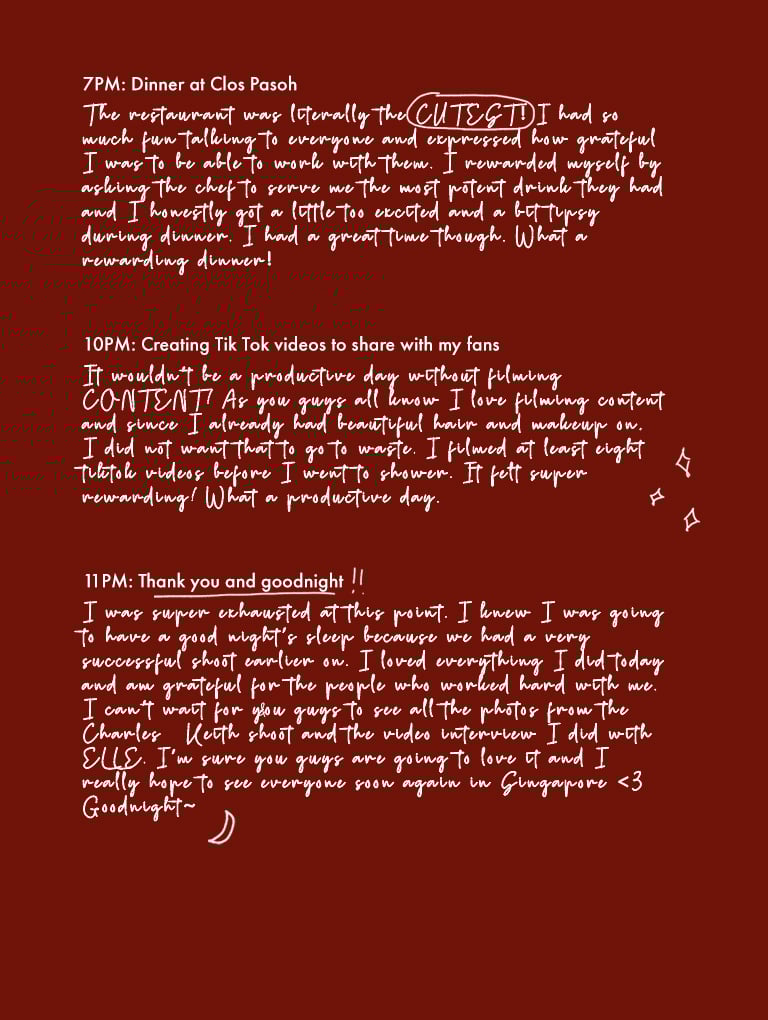 7PM: Dinner at Clos Pasoh
The restaurant was literally the CUTEST! I had so
much fun talking to everyone and expressed how grateful
I was to be able to work with them. I rewarded myself by
asking the chef to serve me the most potent drink they had
and I honestly got a little too excited and a bit tipsy
during dinner. I had a great time though. What a
rewarding dinner!
10PM: Creating Tik Tok videos to share with my fans
It wouldn't be a productive day without filming
CONTENT! As you guys all know I love filming content
and since I already had beautiful hair and makeup on.
I did not want that to go to waste. I filmed at least eight
tiktok videos before I went to shower. It felt super
rewarding! What a productive day.
11PM: Thank you and goodnight !!
I was super exhausted at this point. I knew I was going
to have a good night's sleep because we had a very
successful shoot earlier on. I loved everything I did today
and am grateful for the people who worked hard with me.
I can't wait for you guys to see all the photos from the
Charles Keith shoot and the video interview I did with
ELLE. I'm sure you guys are going to love it and I
really hope to see everyone soon again in Singapore <3
Goodnight~